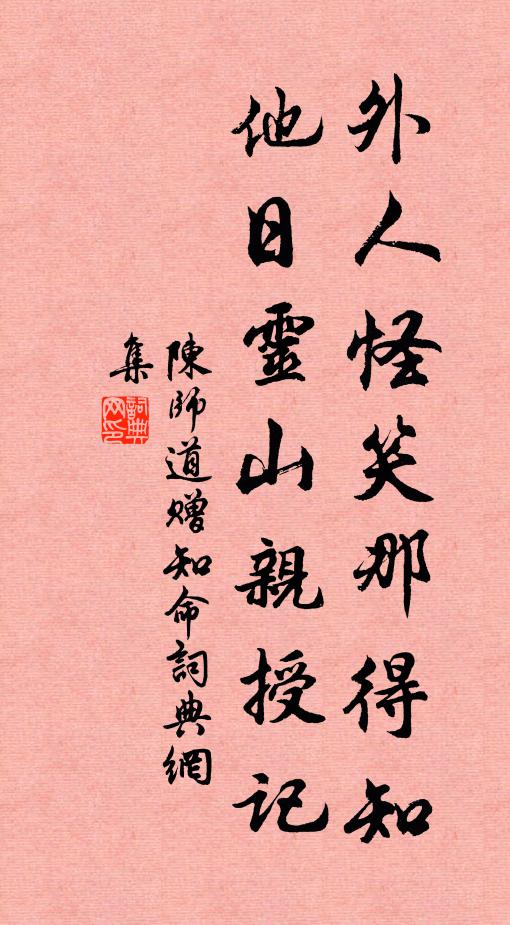 外人怪笑那得知
他日靈山親授記
陳師道赠知命詞典網
集
詞典
网印